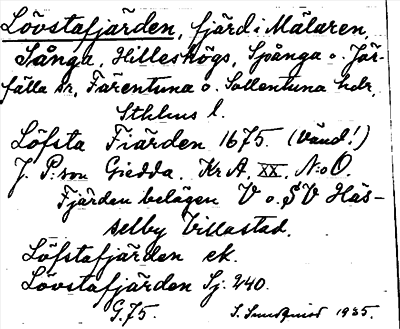 Lövstafjärden, fjärd i Mälaren,
Sånga, Hilleshögs, Spånga o. Jär-
fälla sr, Färentuna o. Sollentuna hdr,
Sthlms l.
Löfsta Fiärden 1675. (Vänd!)
J. P:son Giedda. Kr A, XX, N:o O.
Fjärden belägen V o. SV Häs-
selby Villastad.
Löfstafjärden ek.
Lövstafjärden Sj. 240.
G.75. 1935.